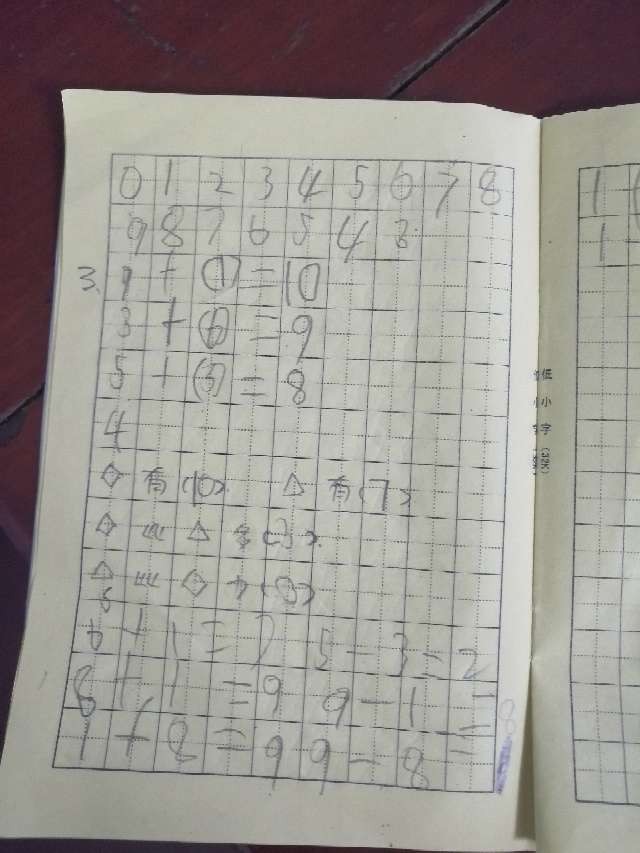 0 1 2 3 4 5 6 7 8
9 8 7 6 5 4 3
3. 9 + (1) = 10
3 + (6) = 9
5 + (3) = 8
4
◇ 有 (10) △ 有 (7)
◇ 比 △ 多 (3).
△ 比 ◇ 少 (3)
6 + 1 = 7 5 - 3 = 2
8 + 1 = 9 9 - 1 = 8
1 + 8 = 9 9 - 8 =